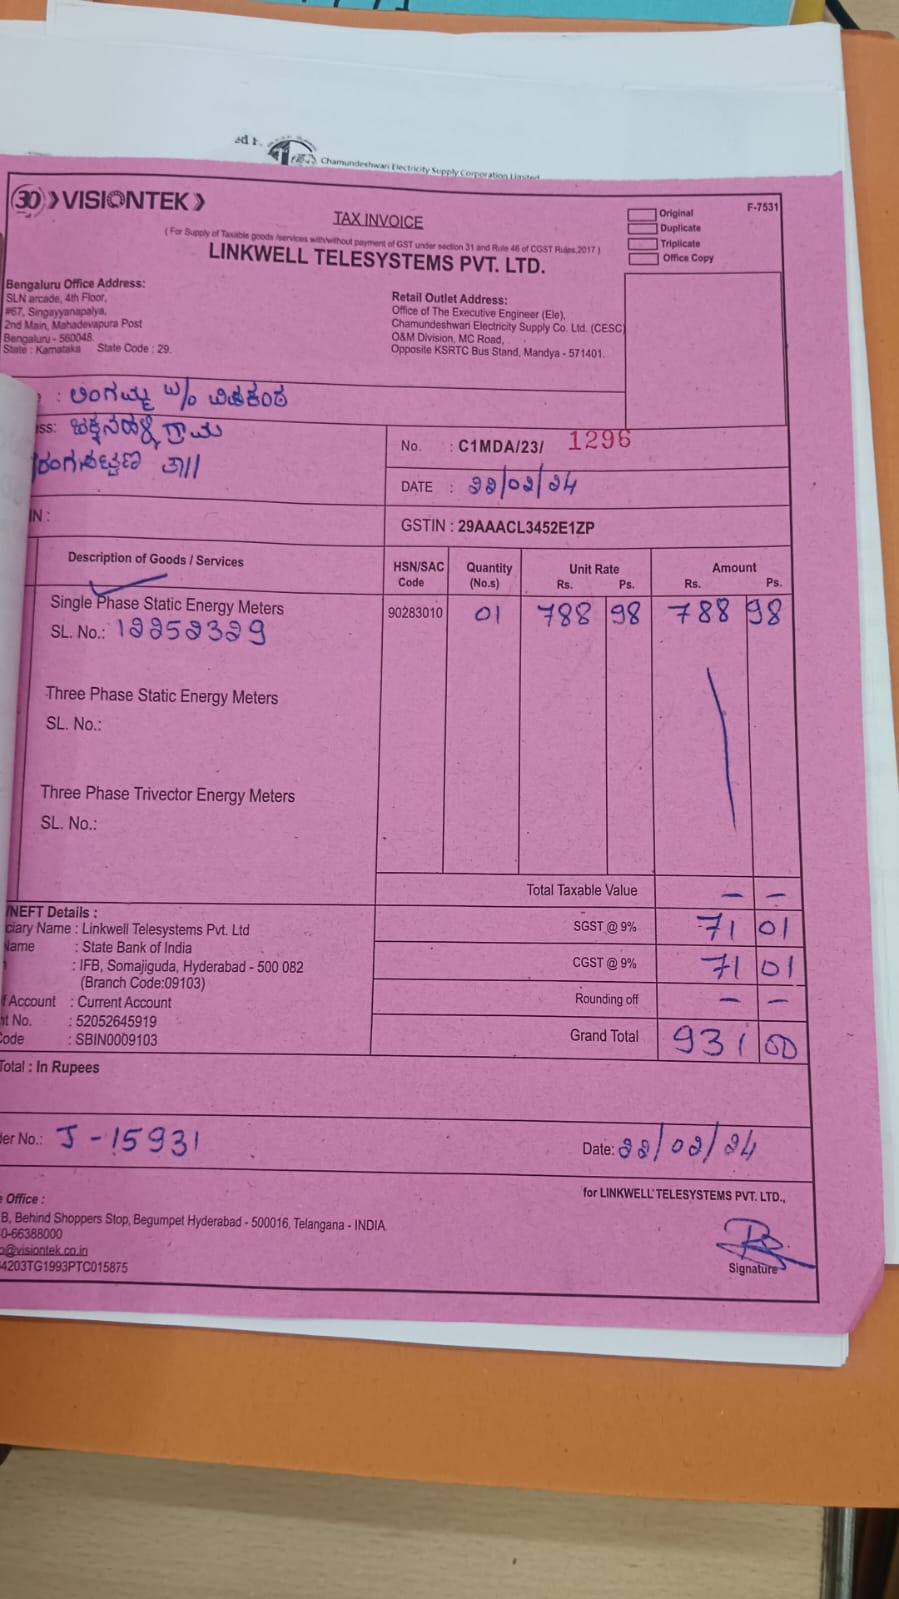 Chamundeshwari Electricity Supply Corporation Limited
30 VISIONTEK
TAX INVOICE
( For Supply of Taxable goods /services with/without payment of GST under section 31 and Rule 46 of CGST Rules,2017 )
LINKWELL TELESYSTEMS PVT. LTD.
Original
Duplicate
Triplicate
Office Copy
F-7531
Bengaluru Office Address:
SLN arcade, 4th Floor,
#67, Singayyanapalya,
2nd Main, Mahadevapura Post
Bengaluru - 560048.
State : Karnataka State Code : 29.
Retail Outlet Address:
Office of The Executive Engineer (Ele),
Chamundeshwari Electricity Supply Co. Ltd. (CESC)
O&M Division, MC Road,
Opposite KSRTC Bus Stand, Mandya - 571401.
: ಲಿಂಗಮ್ಮ w/o
ss: ಗ್ರಾಮ
ರಂಗಪಟ್ಟಣ ತಾ||
No. : C1MDA/23/ 1296
DATE : 22/02/24
IN :
GSTIN : 29AAACL3452E1ZP
Description of Goods / Services
HSN/SAC Code
Quantity (No.s)
Unit Rate
Rs. Ps.
Amount
Rs. Ps.
Single Phase Static Energy Meters
90283010 01 788 98 788 98
SL. No.: 12252329
Three Phase Static Energy Meters
SL. No.:
Three Phase Trivector Energy Meters
SL. No.:
Total Taxable Value — —
SGST @ 9% 71 01
CGST @ 9% 71 01
Rounding off — —
Grand Total 931 00
/NEFT Details :
ciary Name : Linkwell Telesystems Pvt. Ltd
Name : State Bank of India
: IFB, Somajiguda, Hyderabad - 500 082
(Branch Code:09103)
f Account : Current Account
nt No. : 52052645919
Code : SBIN0009103
Total : In Rupees
er No.: J - 15931
Date: 22/02/24
Office :
B, Behind Shoppers Stop, Begumpet Hyderabad - 500016, Telangana - INDIA.
0-66388000
o@visiontek.co.in
4203TG1993PTC015875
for LINKWELL TELESYSTEMS PVT. LTD.,
Signature